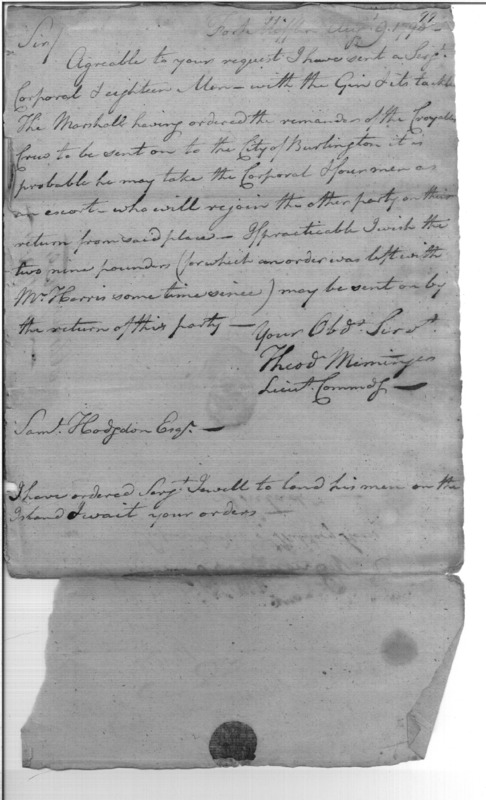 Fort Mifflin Augt 9. 179
Sir/
Agreable to your request I have sent a Serjt.
Corporal & eighteen Men — with the Gin & its tackle
The Marshall having ordered the remainder of the
Crus to be sent on to the City of Burlington it is
probable he may take the Corporal & four men as
an escort — who will rejoin the other party on their
return from said place — If practicable I wish the
two nine pounders (for which an order was left with
Mr. Harris some time since) may be sent on by
the return of this party —
Your Obdt. Servt.
Theodr. Meminger
Lieut. Commdg —
Saml. Hodgdon Esqr. —
I have ordered Serjt. Jewell to land his men on the
Island & wait your orders —